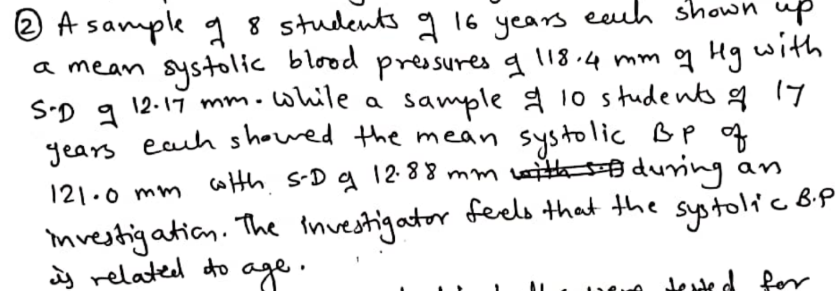 ② A sample of 8 students of 16 years each shown up
a mean systolic blood pressures of 118.4 mm of Hg with
S.D of 12.17 mm. While a sample of 10 students of 17
years each showed the mean systolic BP of
121.0 mm with S-D of 12.88 mm with S.D during an
investigation. The investigator feels that the systolic B.P
is related to age.
tested for